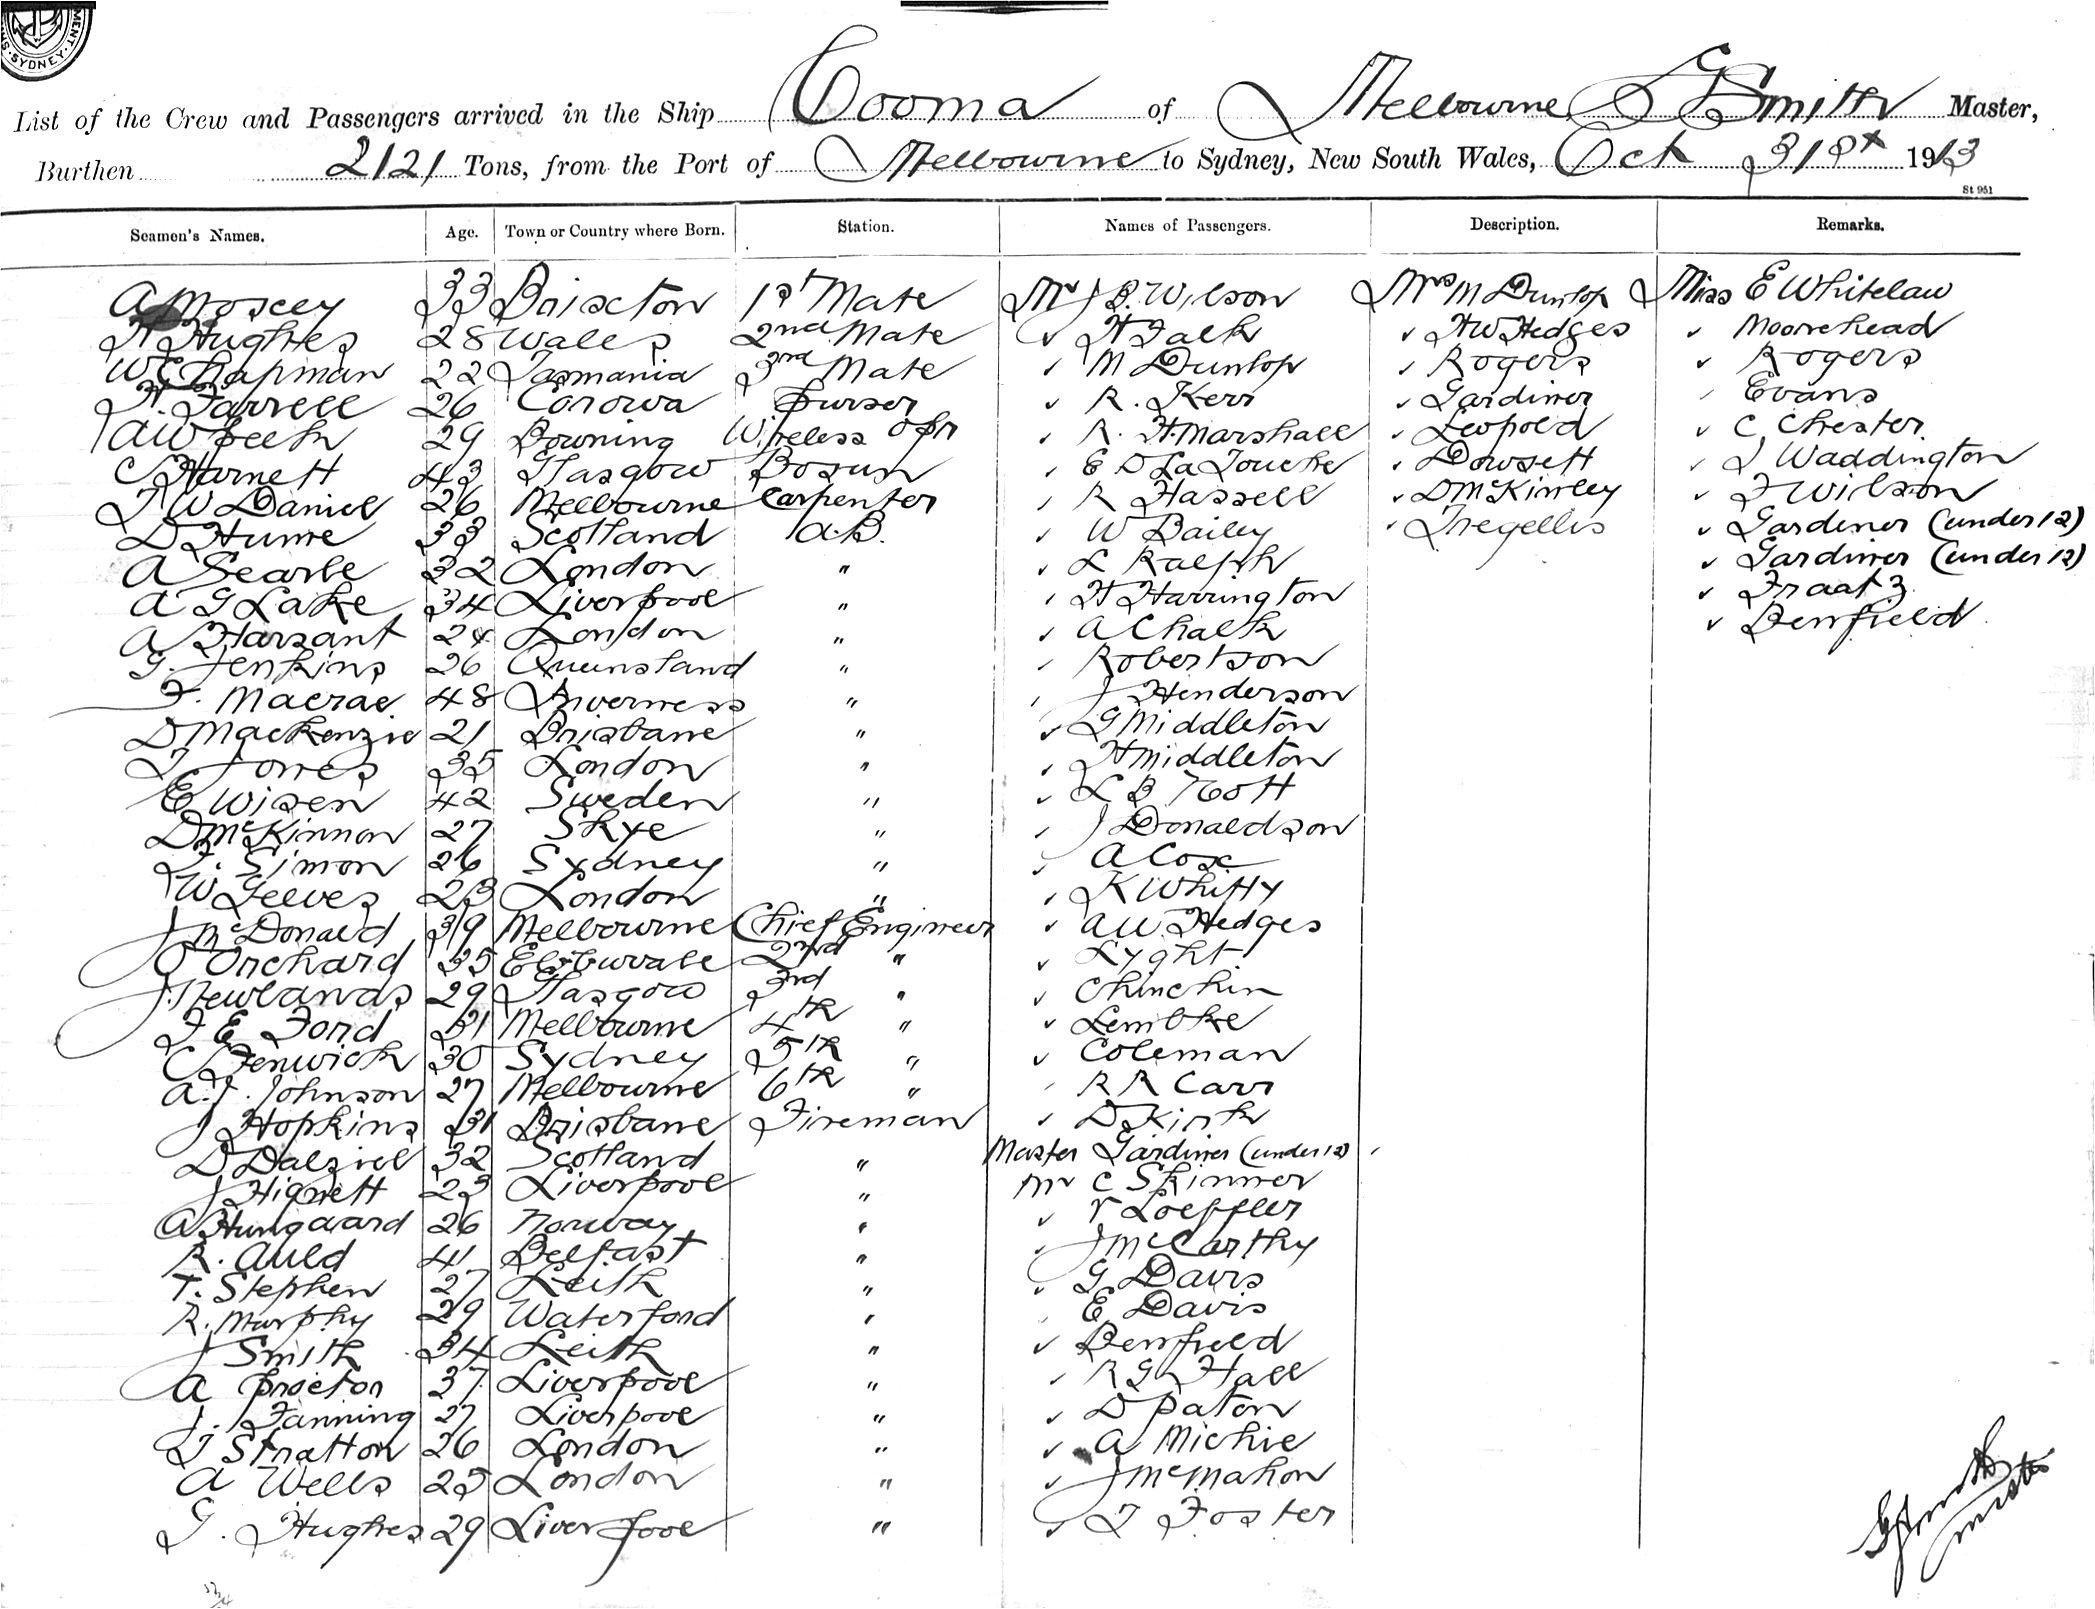 SYDNEY
List of the Crew and Passengers arrived in the Ship Cooma of Melbourne G Smith Master,
Burthen 2121 Tons, from the Port of Melbourne to Sydney, New South Wales, Oct 31st 1913
St 951
Seamen's Names. Age. Town or Country where Born. Station. Names of Passengers. Description. Remarks.
A 33 Brixton 1st Mate Mr J B. Wilson Mrs M Dunlop Miss E Whitelaw
H Hughes 28 Wales 2nd Mate " H Falk " H W Hedges " Moorehead
W E Chapman 22 Tasmania 3rd Mate " M Dunlop " Rogers " Rogers
H. Farrell 26 Corowa Purser " R. Kerr " Gardiner " Evans
A W Peek 29 Bowning Wireless Opr " R. H. Marshall " Leopold " C Chester
C Harnett 43 Glasgow Bosun " E D La Touche " Dowsett " J Waddington
T W Daniel 26 Melbourne Carpenter " R Hassell " D McKinley " F Wilson
D Hume 33 Scotland A.B. " W Bailey " Tregellis " Gardiner (under 12)
A Searle 32 London " " L Ralph " Gardiner (under 12)
A G Lake 34 Liverpool " " H Harrington " Fraatz
A Harsant 24 London " " A Chalk " Benfield
G. Jenkins 26 Queensland " " Robertson
F. Macrae 48 Inverness " " J Henderson
D Mackenzie 21 Brisbane " " G Middleton
T Jones 35 London " " H Middleton
E Wisen 42 Sweden " " L B Nott
D McKinnon 27 Skye " " J Donaldson
F. Simon 26 Sydney " " A Cox
W Geeves 23 London " " K Whitty
J McDonald 39 Melbourne Chief Engineer " A W Hedges
O Orchard 35 2nd " " Lyght
J. Newlands 29 Glasgow 3rd " " Chinchin
F E Ford 31 Melbourne 4th " " Lembke
C Fenwick 30 Sydney 5th " " Coleman
A. J. Johnson 27 Melbourne 6th " " R R Carr
J Hopkins 31 Brisbane Fireman " D Kirk
D Dalziel 32 Scotland " Master Gardiner (under 12)
J Hignett 23 Liverpool " Mr C Skinner
A Hungaard 26 Norway " " V Loeffler
R. Auld 41 Belfast " " J McCarthy
T. Stephen 27 Leith " " G Davis
R. Murphy 29 Waterford " " E Davis
J Smith 34 Leith " " Benfield
A Proctor 37 Liverpool " " R G Hall
J. Fanning 27 Liverpool " " D Paton
T Stratton 26 London " " A Michie
A Wells 25 London " " J McMahon
G. Hughes 29 Liverpool " " T Foster
G Smith
Master